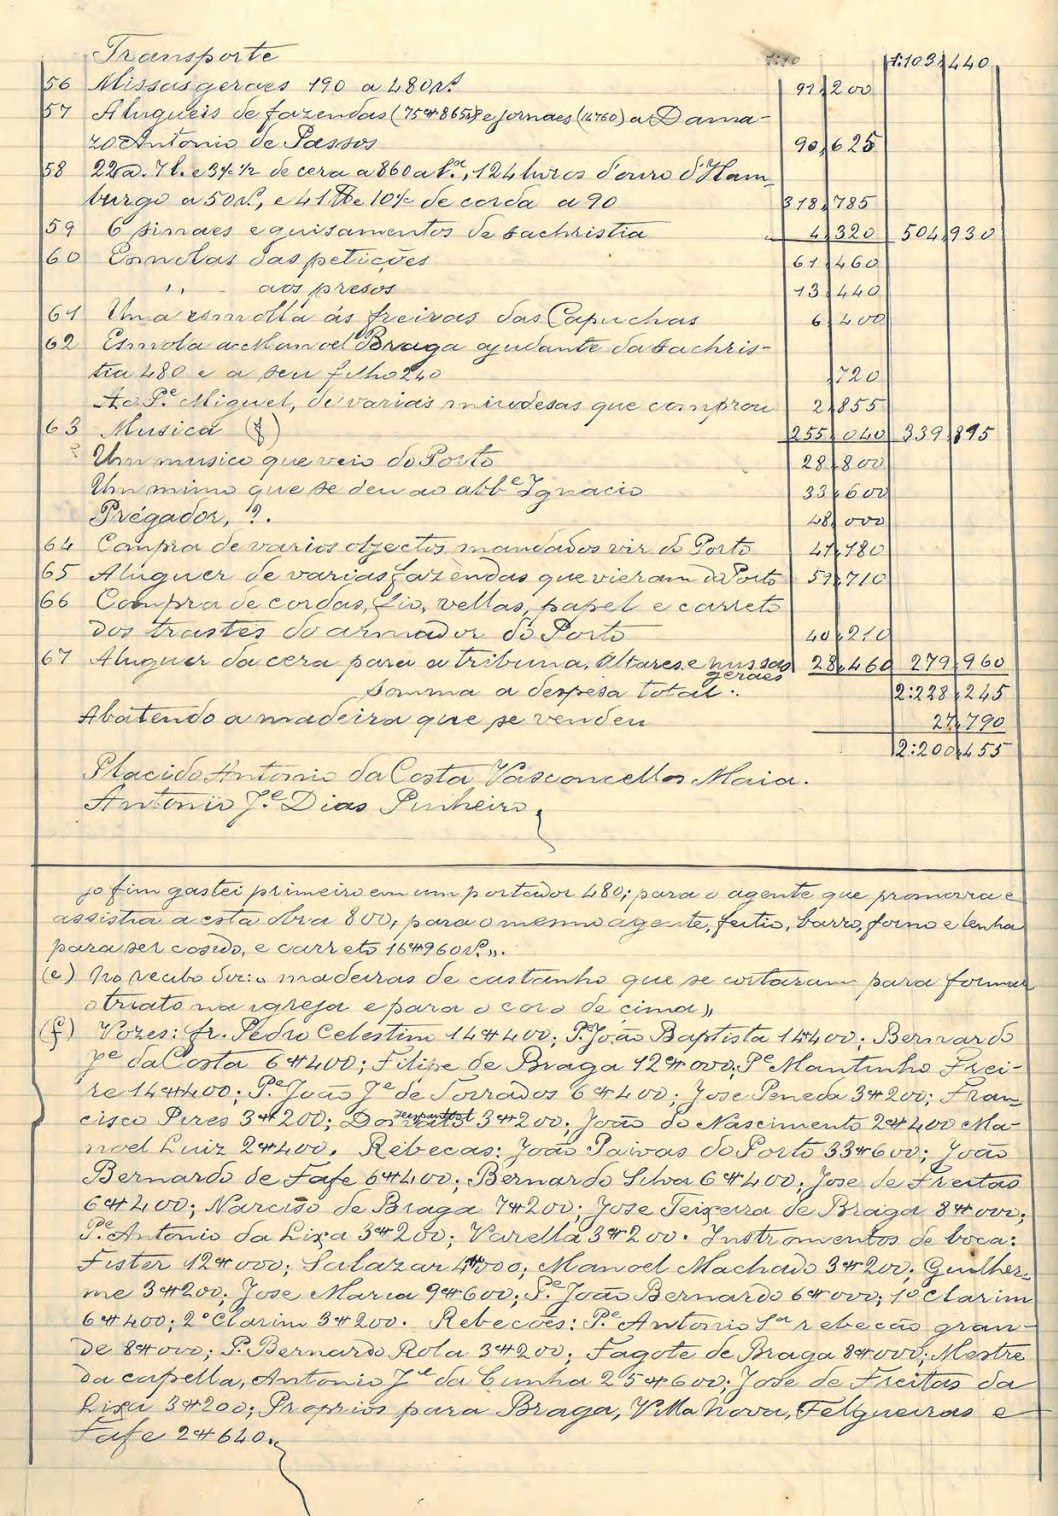 Transporte 1:103,440
56 Missas geraes 190 a 480 rs. 91,200
57 Alugueis de fazendas (75#865) e jornaes (14760) a Dama-
zo Antonio de Passos 90,625
58 22a. 7l. e 3/4 1/2 de cera a 860 a l.a, 124 livros d'ouro d'Ham-
burgo a 50 rs., e 41 e 10/4 de corda a 90 318,785
59 6 sinaes e guisamentos de sachristia 4,320 504,930
60 Esmolas das petições 61,460
,, - aos presos 13,440
61 Uma esmolla ás freiras das Capuchas 6,400
62 Esmola a Manoel Braga ajudante da sachris-
tia 480 e a seu filho 240 ,720
Ao P.e Miguel, de varias miudesas que comprou 2,855
63 Musica (f) 255,040 339,895
Um musico que veio do Porto 28,800
Um mimo que se deu ao abb.e Ignacio 33,600
Prégador, ?. 48,000
64 Compra de varios objectos mandados vir do Porto 41,180
65 Aluguer de varias fazendas que vieram do Porto 59,710
66 Compra de cordas, fio, vellas, papel e carreto
dos trastes do armador do Porto 40,210
67 Aluguer da cera para a tribuna, altares e missas geraes 28,460 279,960
Somma a despesa total.. 2:228,245
Abatendo a madeira que se vendeu 27,790
2:200,455
Placido Antonio da Costa Vasconcellos Maia.
Antonio J.e Dias Pinheiro
jo fim gastei primeiro em um portador 480; para o agente que promovia e
assistia a esta obra 800, para o mesmo agente, feitio, barro, forno e lenha
para ser cosido, e carreto 16#960 rs.".
(e) No recibo diz: « madeiras de castanho que se cortaram para formar
o triato na igreja e para o coro de cima »
(f) Vozes: fr. Pedro Celestim 14#400; P.e João Baptista 14400; Bernardo
J.e da Costa 6#400; Filipe de Braga 12#000; P.e Mantinho Frei-
re 14#400; P.e João J.e de Torrados 6#400; Jose Peneda 3#200; Fran-
cisco Pires 3#200; Dos 3#200; João do Nascimento 2#400 Ma-
noel Luiz 2#400. Rebecas: João Paivas do Porto 33#600; João
Bernardo de Fafe 6#400; Bernardo Silva 6#400; Jose de Freitas
6#400; Narciso de Braga 7#200; Jose Teixeira de Braga 8#000;
P.e Antonio da Lixa 3#200; Varella 3#200. Instromentos de boca:
Fister 12#000; Salazar 4#000; Manoel Machado 3#200; Guilher-
me 3#200; Jose Maria 9#600; P.e João Bernardo 6#000; 1º Clarim
6#400; 2º Clarim 3#200. Rebecões: P.e Antonio rebecão gran-
de 8#000; P. Bernardo Rola 3#200; Fagote de Braga 8#000; Mestre
da capella, Antonio J.e da Cunha 25#600; Jose de Freitas da
Lixa 3#200; Proprios para Braga, Villa Nova, Felgueiras e
Fafe 2#640.